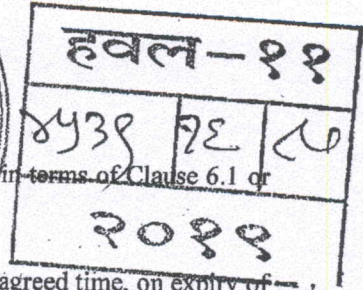 हवल-११
४५३९ १६
in terms of Clause 6.1 or
२०११
agreed time, on expiry of